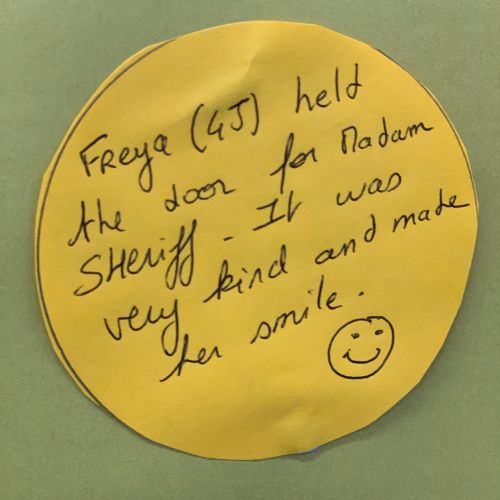 Freya (4J) held
the door for Madam
Sheriff. It was
very kind and made
her smile.